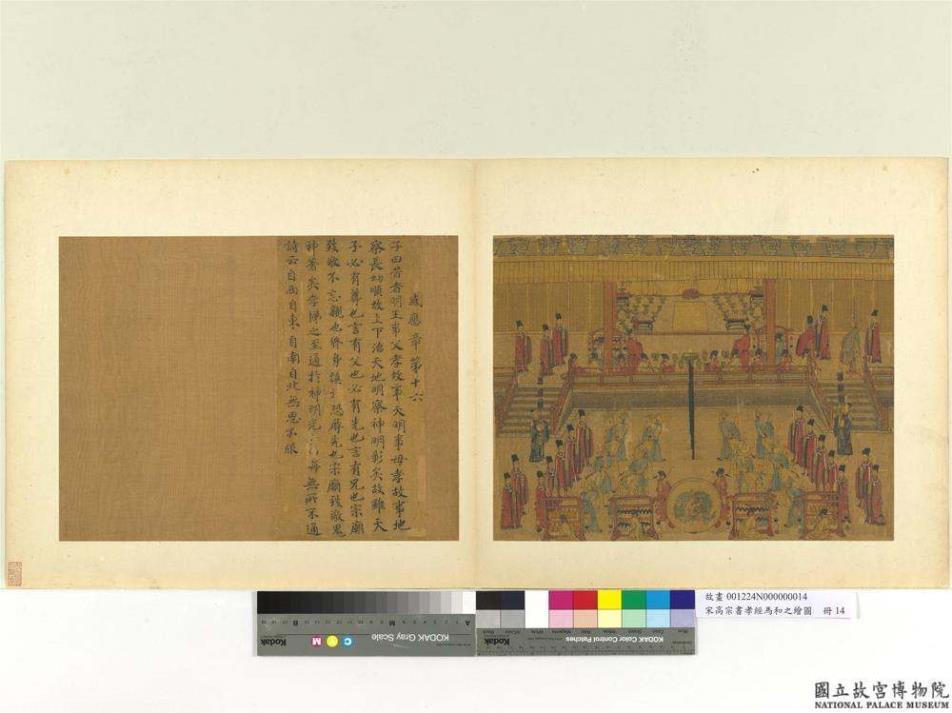 感應章第十六
子曰昔者明王事父孝故事天明事母孝故事地
察長幼順故上下治天地明察神明彰矣故雖天
子必有尊也言有父也必有先也言有兄也宗廟
致敬不忘親也脩身恐辱先也宗廟致敬鬼
神著矣孝悌之至通於神明光無所不通
詩云自西自東自南自北無思不服
故畫 001224N000000014
宋高宗書孝經馬和之繪圖 冊 14
Kodak
C Y M
KODAK Gray Scale
A
M
B
KODAK Color Control Patches
Kodak
國立故宮博物院
NATIONAL PALACE MUSEUM